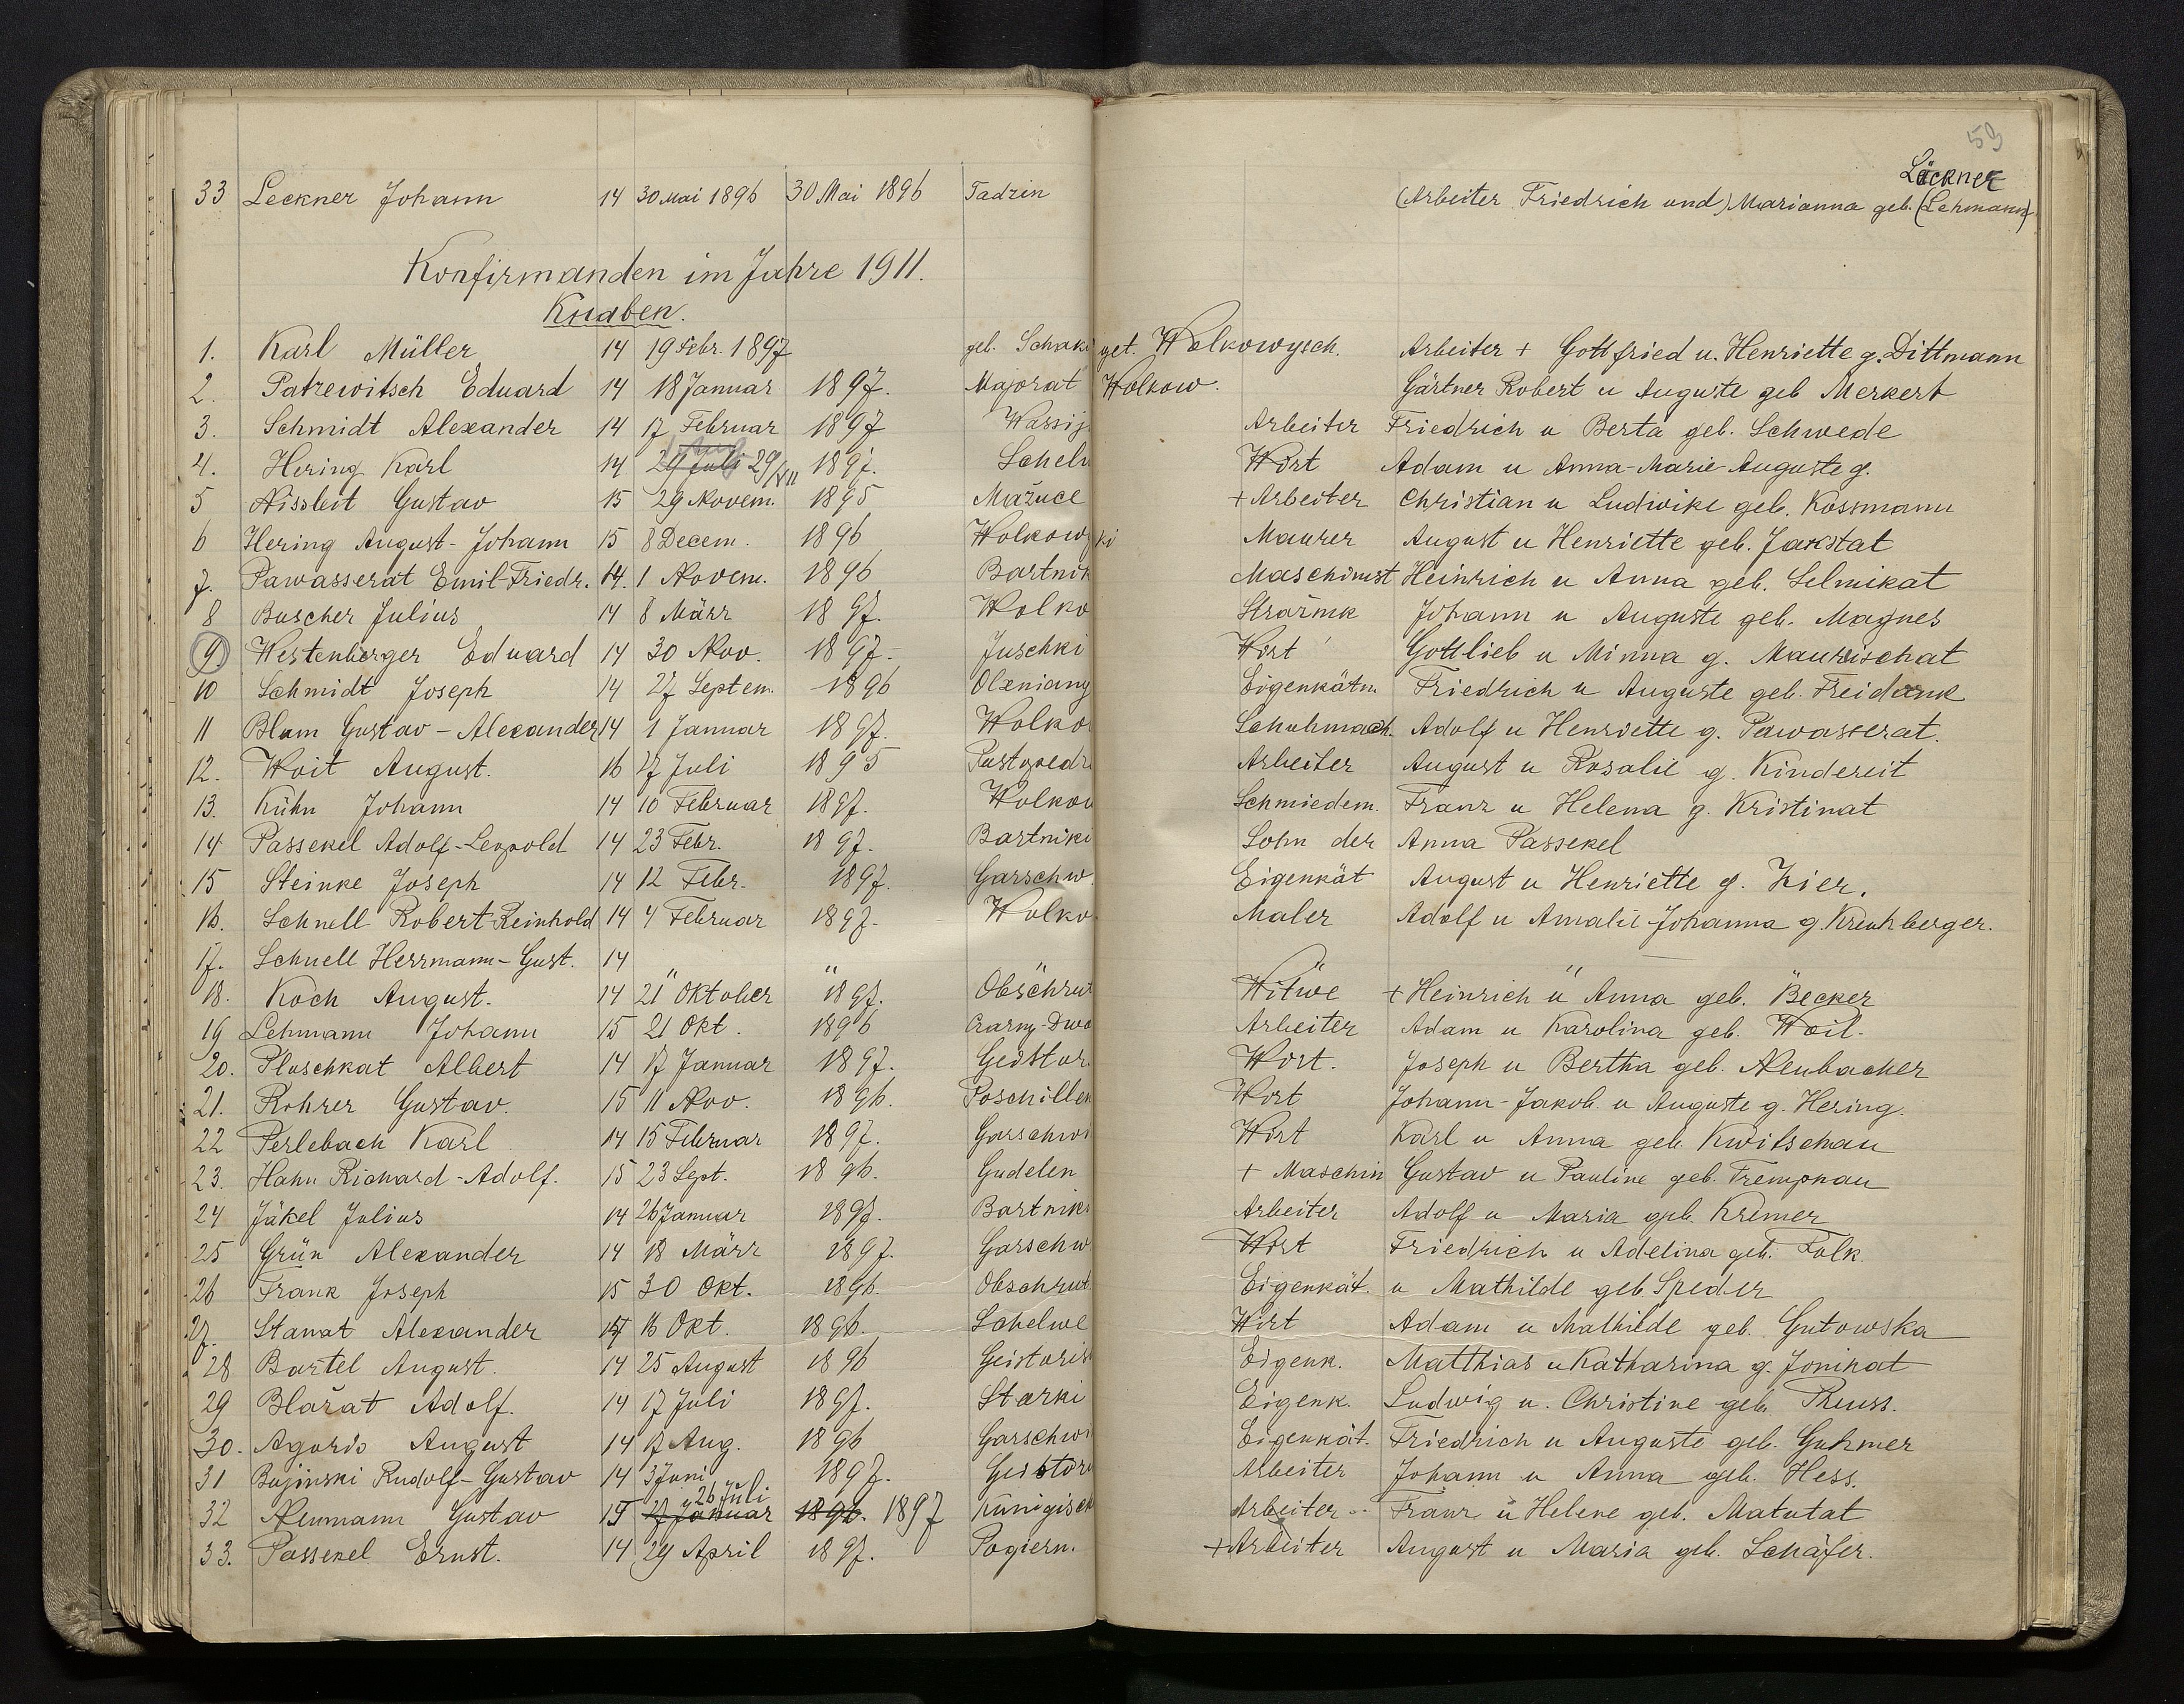 59
Läckner
33 Leckner Johann 14 30 Mai 1896 30 Mai 1896 Tadzin (Arbeiter Friedrich und) Marianna geb. (Lehmann)
Konfirmanden im Jahre 1911.
Knaben.
1. Karl Müller 14 19 Febr. 1897 geb. Schaki get. Wolkowysch. Arbeiter + Gottfried u. Henriette g. Dittmann
2. Patzewitsch Eduard 14 18 Januar 1897. Majorat Wolkow. Gärtner Robert u Auguste geb Merkert
3. Schmidt Alexander 14 17 Februar 1897 Wassij Arbeiter Friedrich u Berta geb. Schwede
4. Hering Karl 14 29 Juli Aug 29/VII 1897. Schelw Wirt Adam u Anna-Marie-Auguste g.
5 Nissleit Gustav 15 29 Novem. 1895 Mažuce + Arbeiter Christian u Ludwike geb. Kossmann
6 Hering August-Johann 15 8 Decem. 1896 Wolkowyski Maurer August u Henriette geb. Jakstat
7. Pawasserat Emil-Friedr. 14. 1 Novem. 1896 Bartnik Maschinist Heinrich u Anna geb. Selmikat
8 Buscher Julius 14 8 März 1897. Wolko Stražnik Johann u Auguste geb. Magnes
9. Westenberger Eduard 14 30 Nov. 1897. Juschki Wirt Gottlieb u Minna g. Maurischat
10 Schmidt Joseph 14 27 Septem. 1896 Olxniany Eigenkätn. Friedrich u Auguste geb. Freidank
11 Blum Gustav-Alexander 14 1 Januar 1897. Wolko Schuhmach. Adolf u Henriette g. Pawasserat.
12. Woit August. 16 27 Juli 1895 Pustopedz Arbeiter August u Rosalie g. Kindereit
13. Kühn Johann 14 10 Februar 1897. Wolkow Schmiedem. Franz u Helena g. Kristinat
14 Passekel Adolf-Leopold 14 23 Febr. 1897. Bartniki Sohn der Anna Passekel
15 Steinke Joseph 14 12 Febr. 1897. Garschw. Eigenkät August u Henriette g. Zier.
16. Schnell Robert-Reinhold 14 4 Februar 1897. Wolko Maler Adolf u Amalie Johanna g. Kreuhberger.
17. Schnell Herrmann-Gust. 14 " " " " "
18. Koch August. 14 21 Oktober 1897. Obschrut Witwe + Heinrich u Anna geb. Becker
19 Lehmann Johann 15 21 Okt. 1896 Czarny-Dwo Arbeiter Adam u Karolina geb. Weil.
20. Pluschkat Albert 14 17 Januar 1897. Geistor. Wirt. Joseph u Bertha geb. Neubacher
21. Rohrer Gustav. 15 11 Nov. 1896. Poschillen Wirt Johann-Jakob. u Auguste g. Hering.
22 Perlebach Karl 14 15 Februar 1897. Garschwi Wirt Karl u Anna geb. Kwitschau
23. Hahn Richard-Adolf. 15 23 Sept. 1896. Gudelen + Maschin Gustav u Pauline geb. Trempnau
24 Jäkel Julius 14 26 Januar 1897. Bartniki Arbeiter Adolf u Maria geb. Krimer
25 Grün Alexander 14 18 März 1897. Garschw Wirt Friedrich u Adelina geb. Folk
26 Frank Joseph 15 30 Okt. 1896. Obschrut Eigenkät. u Mathilde geb. Speder
27. Stanat Alexander 14 16 Okt. 1896. Schelwe Wirt Adam u Mathilde geb. Gutowska
28 Bartel August. 14 25 August 1896 Geistoris Eigenk. Matthias u Katharina g. Jonikat
29 Blažat Adolf. 14 17 Juli 1897. Starki Eigenk. Ludwig u. Christine geb. Preuss.
30. Aguris August 14 17 Aug. 1896 Garschwi Eigenkät. Friedrich u Auguste geb. Guhmer
31 Bujinski Rudolf-Gustav 14 3 Juni 1897. Geistori Arbeiter Johann u Anna geb. Hess.
32 Neumann Gustav 15 27 Januar 26 Juli 1896. 1897 Künigisch Arbeiter Franz u Helene geb. Matutat
33. Passekel Ernst. 14 29 April 1897. Pogiern. + Arbeiter August u Maria geb. Schäfer.